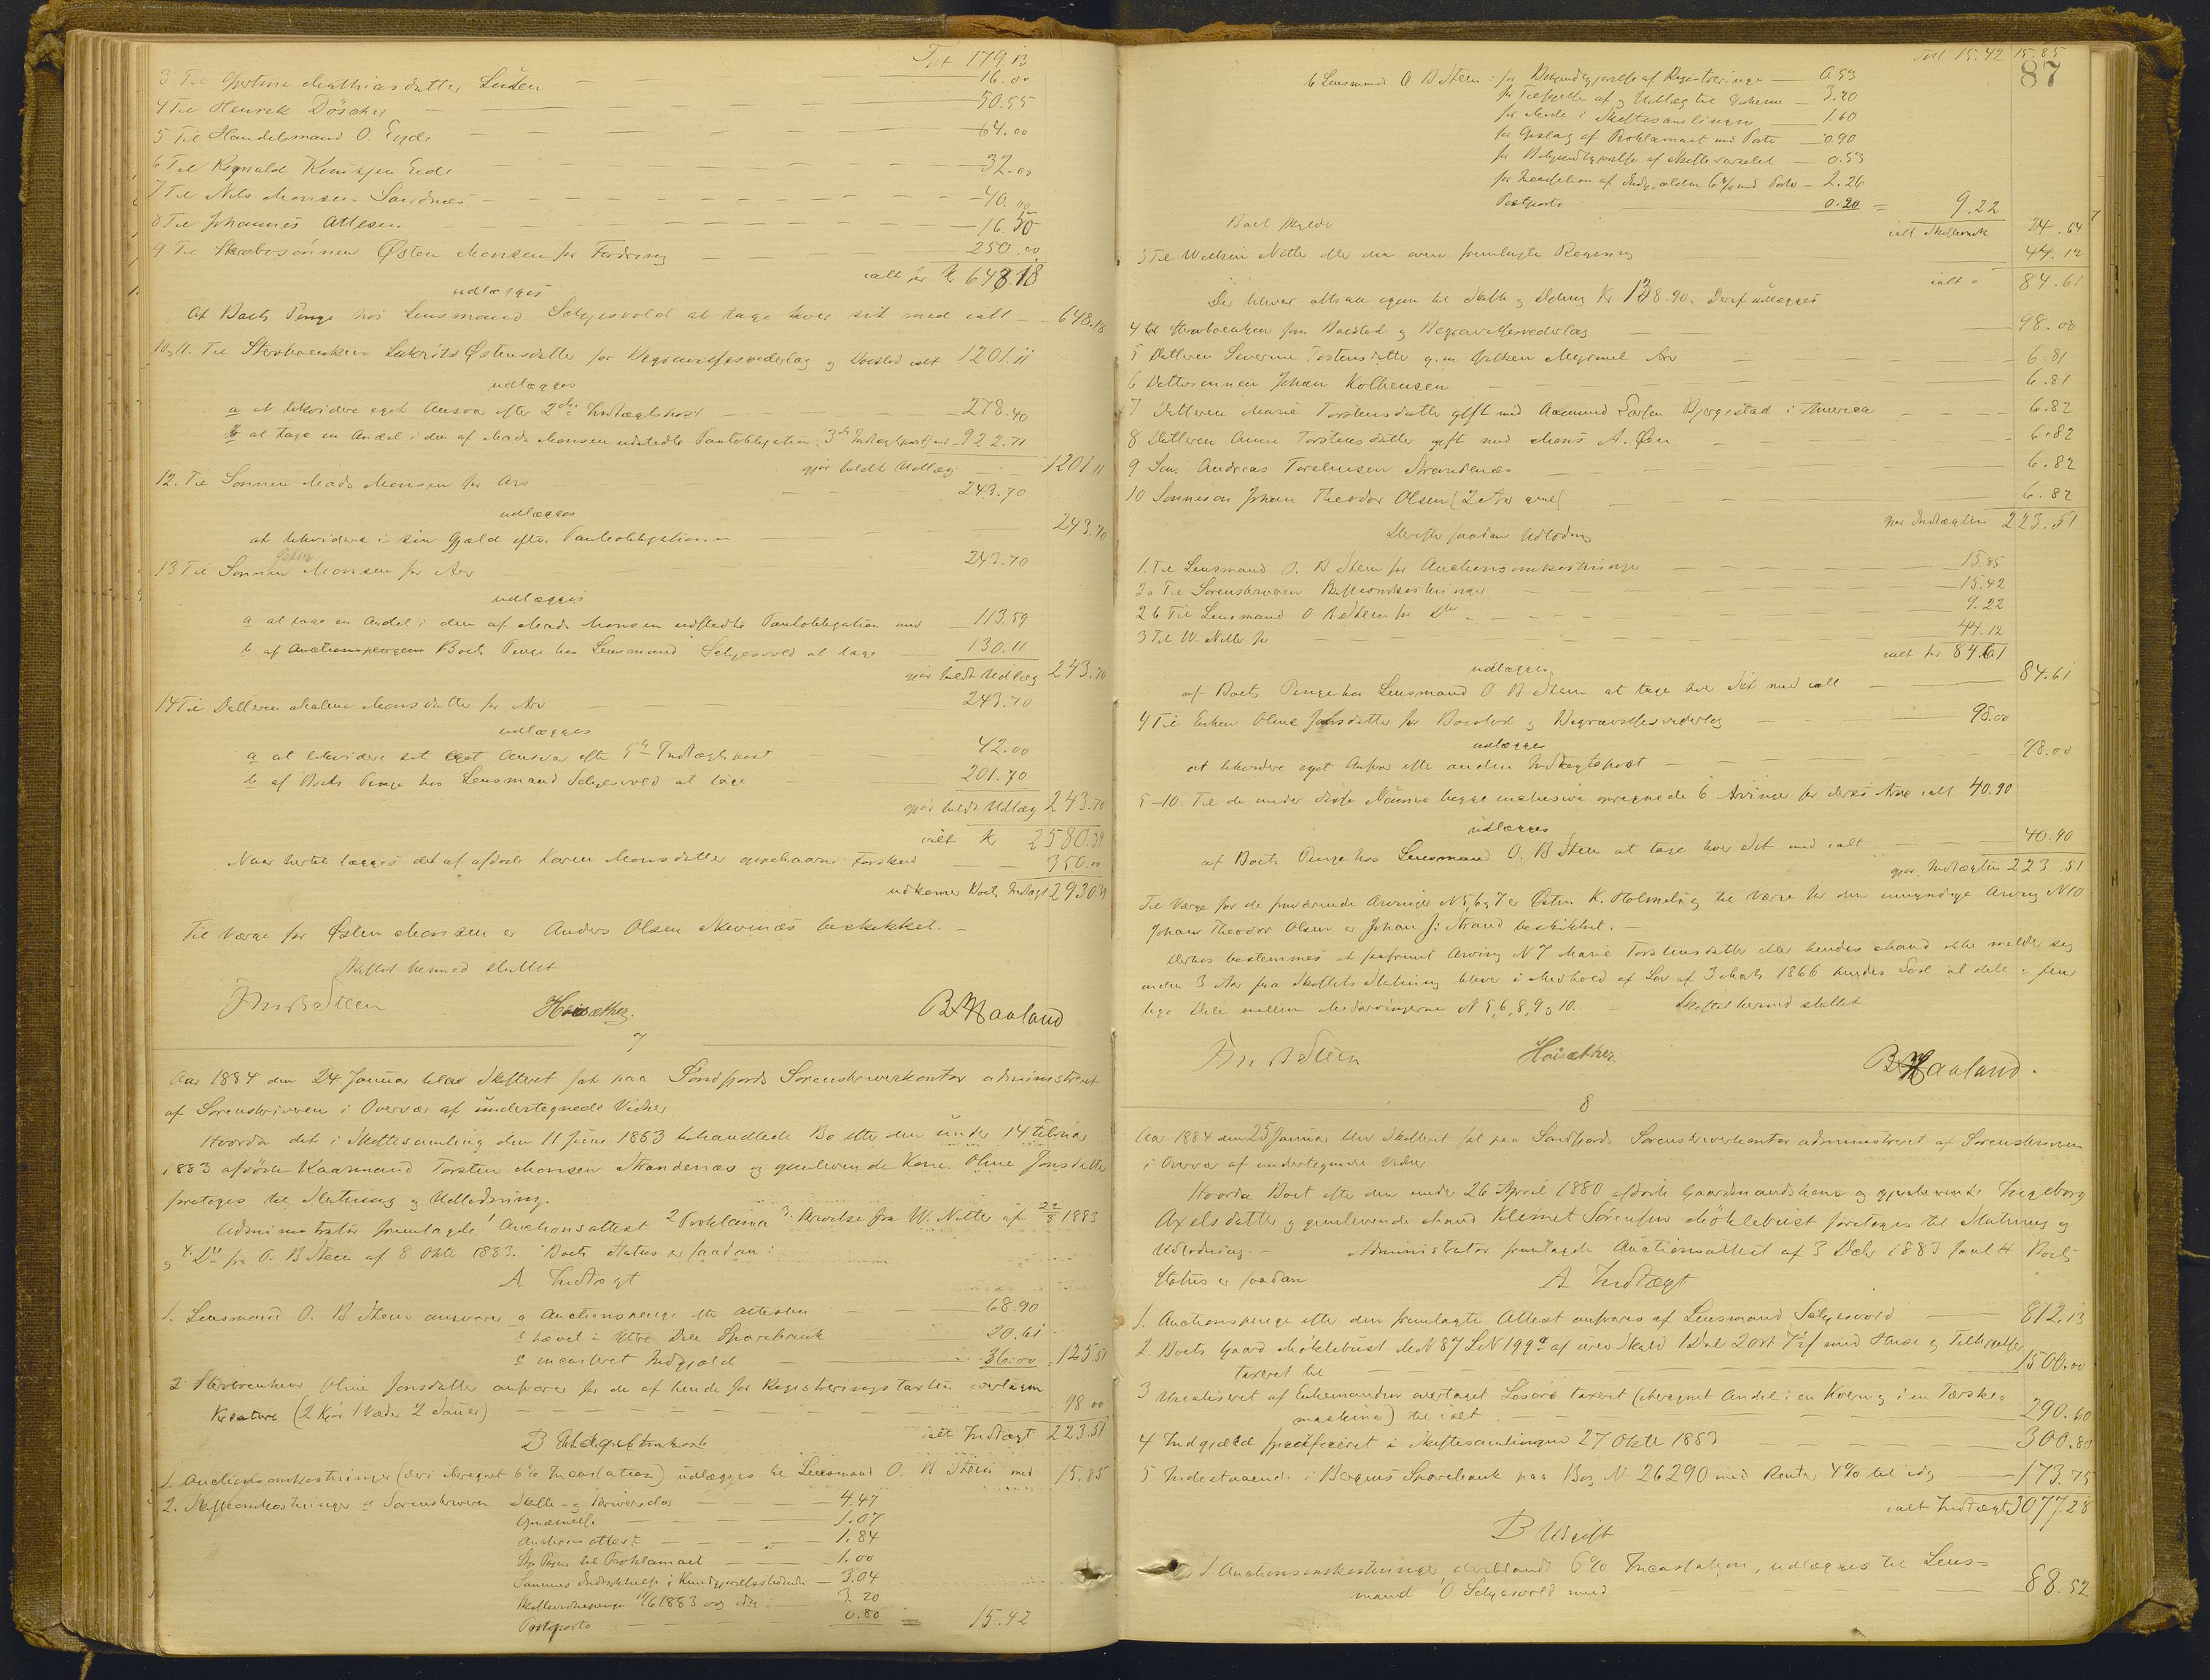 Tpt 179.13
3 Til Mathiasdatter
16.00
4 Til Henrik Döscher
50.55
5 Til Handelsmand O. Eide
64.00
6 Til Eide
32.00
7 Til Nils Monsen Sandnæs
40.00
8 Til Johannes Attesen
16.50
9 Til Sterbosönnen Østen Monsen for Fordring
250.00
ialt for Kr 648.18
udlægges
Af Boets Penge hos Lensmand Sælgesvold at tage hver sit med ialt 648.18
10, 11. Til Sterboenken Østensdatter for Begravelsesvederlag og Boeslod ialt 1201.11
udlægges
a at likvidere eget Ansvar efter 2den Indtægtspost
278.40
b at tage en Andel i den af Mads Monsen udstedte Pantobligation 3die Indtægtspost med 922.71
gjør heldt Udlæg 1201 11
12. Til Sønnen Mads Monsen for Arv
243.70
udlægges
at likvidere i sin Gjæld efter Pantobligationen
243.70
13 Til Sønnen Østen Monsen for Arv
243.70
udlægges
a at tage en Andel i den af Mads Monsen udstedte Pantobligation med 113.59
b af Boets Penge hos Lensmand Sælgesvold at tage 130.11
gjør heldt Udlæg 243.70
14 Til Datteren Malene Monsdatter for Arv
243.70
udlægges
a at likvidere sit eget Ansvar efter 5te Indtægtspost
42.00
b af Boets Penge hos Lensmand Sælgesvold at tage
201.70
gjør heldt Udlæg 243.70
ialt Kr 2580.39
Naar hertil lægges det af afdøde Karen Monsdatter oppebaarne Forskud
350.00
udkommer Boets Indtægt 2930.39
Til Værge for Østen Monsen er Anders Olsen beskikket.
Skiftet hermed sluttet
Steen
Høisæther.
B Haaland
7
Aar 1884 den 24 Januar blev Skifteret sat paa Søndfjords Sorenskriverkontor administreret
af Sorenskriveren i Overvær af undertegnede Vidner
Hvorda det i Skiftesamling den 11 Juni 1883 behandlede Bo efter den under 14 Februar
1883 afdøde Kaarmand Torsten Monsen Strandenæs og gjenlevende Kone Oline Jonsdatter
foretoges til Slutning og Udlodning.
Administrator fremlagde 1 Auctionsattest 2 Proklama 3. Skrivelse fra W. Netter af 22/8 1883
og 4. Do fra O. B Steen af 8 Oktr 1883. Boets Status er saadan:
A Indtægt
1. Lensmand O. B Steen ansvarer a Auctionspenge efter Attesten
68.90
b hævet i Ytre Dals Sparebank
20.61
c incasseret Indgjæld
36.00 125.51
2 Sterboenken Oline Jonsdatter ansvarer for de af hende for Registreringstaxten overtagne
Kreature (2 Kjør 1 Væder 2 Sauer)
98 00
ialt Indtægt 223.51
B
1 Auctionsomkostninger (deri beregnet 6% Incassation) udlægges til Lensmand O. B Steen med 15.85
2. Skifteomkostninger a Sorenskriveren Skifte- og Skriversalær
4.47
1.07
Auctionsattest
1.84
Stpl Papir til Proklamaet
1.00
Sammes Indrykkelse i Kundgjørelsestidende
3.04
Skiftevidnepenge 11/6 1883 og idag
3 20
Postporto
0.80 = 15.42
Tpt 15.42 15.85
87
b Lensmand O B Steen: for Bekjendtgjørelse af Registreringen 0 53
for Tilsigelse af og Udlæg til Vidnerne 3.20
for Møde i Skiftesamlingen 1.60
for Opslag af Proklamaet med Porto 0.90
for Bekjendtgjørelse af Skiftevarselet 0.53
for Incassation af Indgjælden 6% med Porto 2.26
Postporto 0.20 =
9.22
Boets Gjeld
ialt Skifteomk 24.64
3 Til Netter efter den ovenfremlagte Regning
44.12
ialt = 84.61
Der bliver altsaa igjen til Skifte og Deling Kr 138.90. Deraf udlægges
4 til Sterboenken som Boeslod og Begravelsesvederlag
98.00
5 Datteren Severine Torstensdatter g. m. Arv
6.81
6 Dattersønnen Johan Kolbensen
6.81
7 Datteren Marie Torstensdatter gift med Aamund Larsen Bjergestad i America
6.82
8 Datteren Anne Torstensdatter gift med Mons A. Øen
6.82
9 Søn Andreas Torstensen Strandenæs
6.82
10 Sønnesøn Johan Theodor Olsen (2 Aar gml)
6.82
gjør Indtægten 223.51
Derefter saadan Udlodning
1. Til Lensmand O. B Steen for Auctionsomkostninger
15.85
2a Til Sorenskriveren Skifteomkostninger
15.42
2b Til Lensmand O B Steen for Do
9.22
3 Til W. Netter for
44.12
ialt for 84.61
udlægges
af Boets Penge hos Lensmand O. B Steen at tage hver Sit med ialt
84.61
4 Til Enken Oline Jonsdatter for Boeslod og Begravelsesvederlag
98.00
udlægges
at likvidere eget Ansvar efter anden Indtægtspost
98.00
5-10. Til de under disse Numre begge inclusive opregnede 6 Arvinger for deres Arv ialt 40.90
udlægges
af Boets Penge hos Lensmand O. B Steen at tage hver Sit med ialt
40.90
gjør Indtægten 223.51
Til Værge for de fraværende Arvinger N 5, 6 og 7 er Østen K. Holmelid og til Værge for den umyndige Arving N 10
Johan Theodor Olsen er Johan J. Strand beskikket.
Derhos bestemmes at saafremt Arving N 7 Marie Torstensdatter eller hendes Mand ikke melder sig
inden 3 Aar fra Skiftets Slutning bliver i Medhold af Lov af 3 Marts 1866 hendes Lod at dele i fem
lige Dele mellem Medarvingerne N 5, 6, 8, 9 og 10.
Skiftet hermed sluttet
Steen
Høisæther
B Haaland.
8
Aar 1884 den 25 Januar blev Skifteret sat paa Søndfjords Sorenskriverkontor administreret af Sorenskriveren
i Overvær af undertegnede Vidner
Hvorda Boet efter den under 26 April 1880 afdøde Gaardmandskone Ingeborg
Axelsdatter og gjenlevende Mand Klemet Sørensen Møklebust foretoges til Slutning og
Udlodning - Administrator fremlagde Auctionsattest af 3 Decbr 1883 Boets
Status er saadan
A Indtægt
1. Auctionspenge efter den fremlagte Attest ansvares af Lensmand Sælgesvold
812.13
2. Boets Gaard Møklebust M N 87 L N 199a af urev Skyld 1 Dal 2 Ort 7 ß med Huse og Tilbehør
taxeret til
1500.00
3 Urealiseret af Enkemanden overtaget Løsøre taxeret (iberegnet Andel i en Kvern og i en Tærske=
maskine) til ialt
290.60
4 Indgjæld specificeret i Skiftesamlingen 27 Oktr 1883
300.80
5 Indestaaende i Bergens Sparebank paa Bog N 26290 med Renter 4% til idag
173.75
ialt Indtægt 3077.28
B Udgift
1 Auctionsomkostninger, deriblandt 6% Incassation, udlægges til Lens=
mand O. Sælgesvold med
88.52